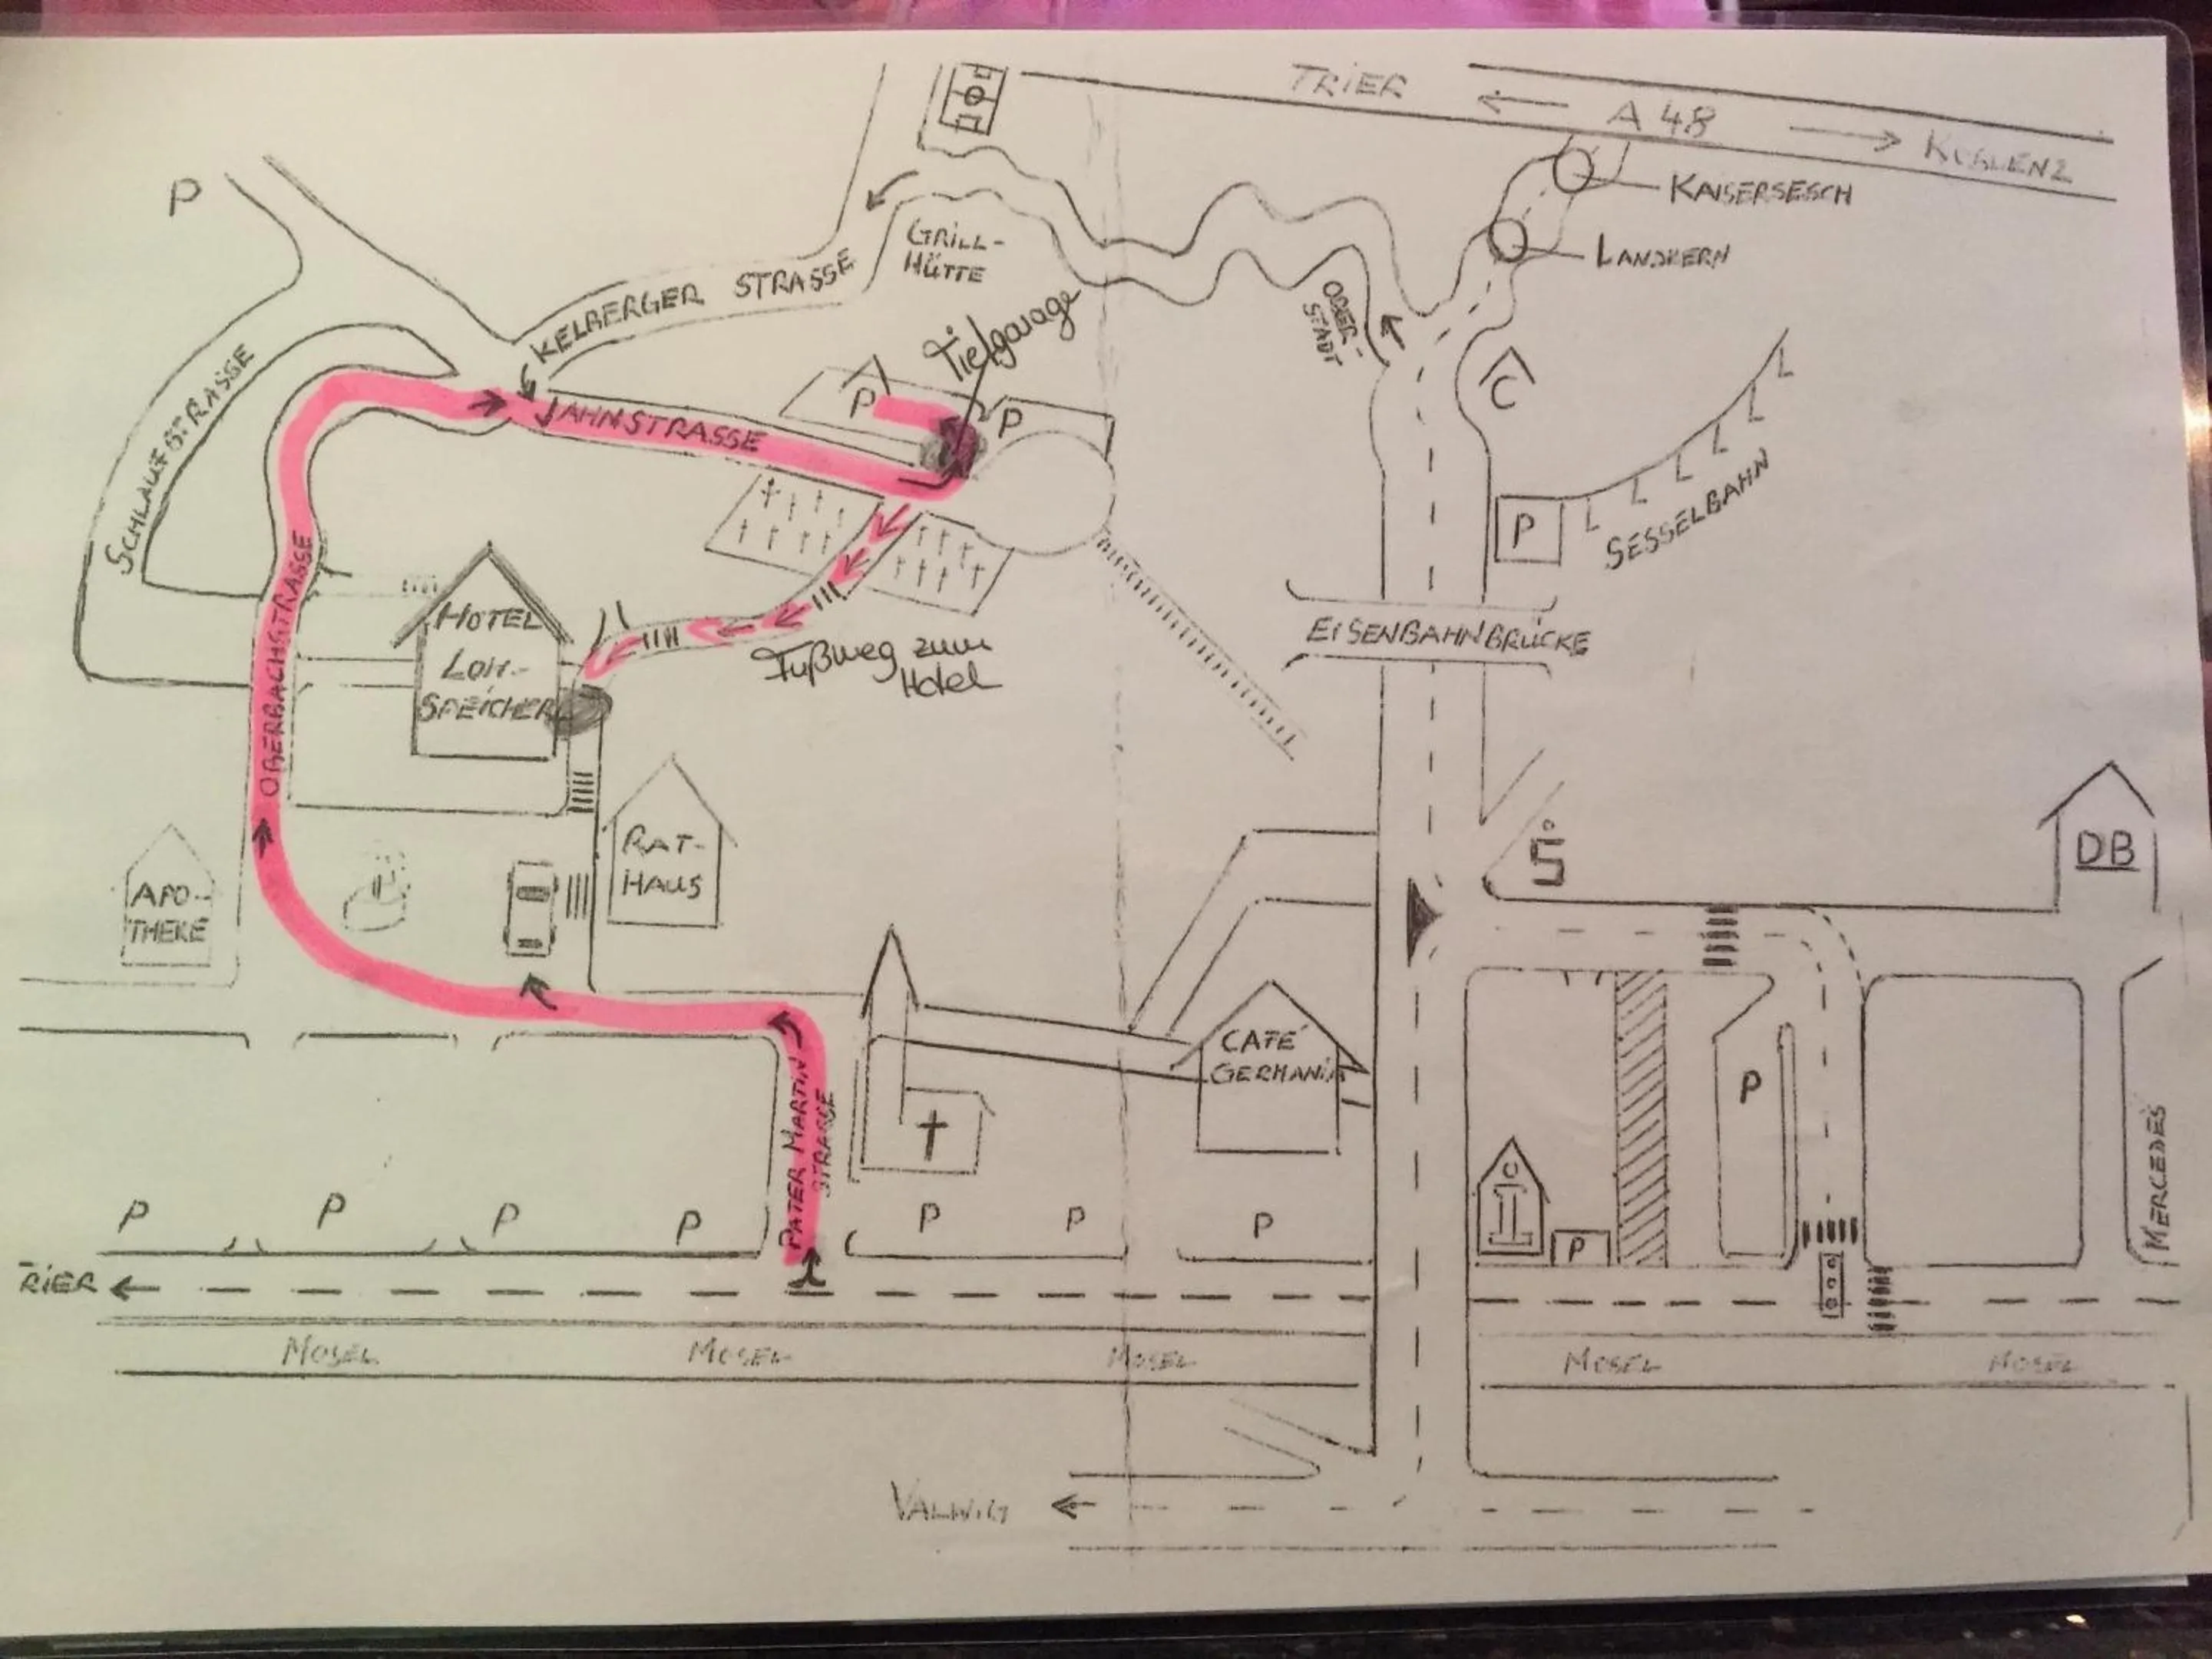 TRIER ←
A 48
→ KOBLENZ
KAISERSESCH
LANDKERN
P
GRILL-
HÜTTE
KELBERGER STRASSE
OBER-
STADT
Tiefgarage
C
SCHLAUFSTRASSE
P
P
JAHNSTRASSE
P
SESSELBAHN
OBERBACHSTRASSE
HOTEL
LOH-
SPEICHER
Fußweg zum
Hotel
EISENBAHNBRÜCKE
RAT-
HAUS
APO-
THEKE
DB
CAFÉ
GERMANIA
PATER MARTIN
STRASSE
P
MERCEDES
P
P
P
P
P
P
P
P
TRIER ←
MOSEL
MOSEL
MOSEL
MOSEL
MOSEL
VALWIG ←